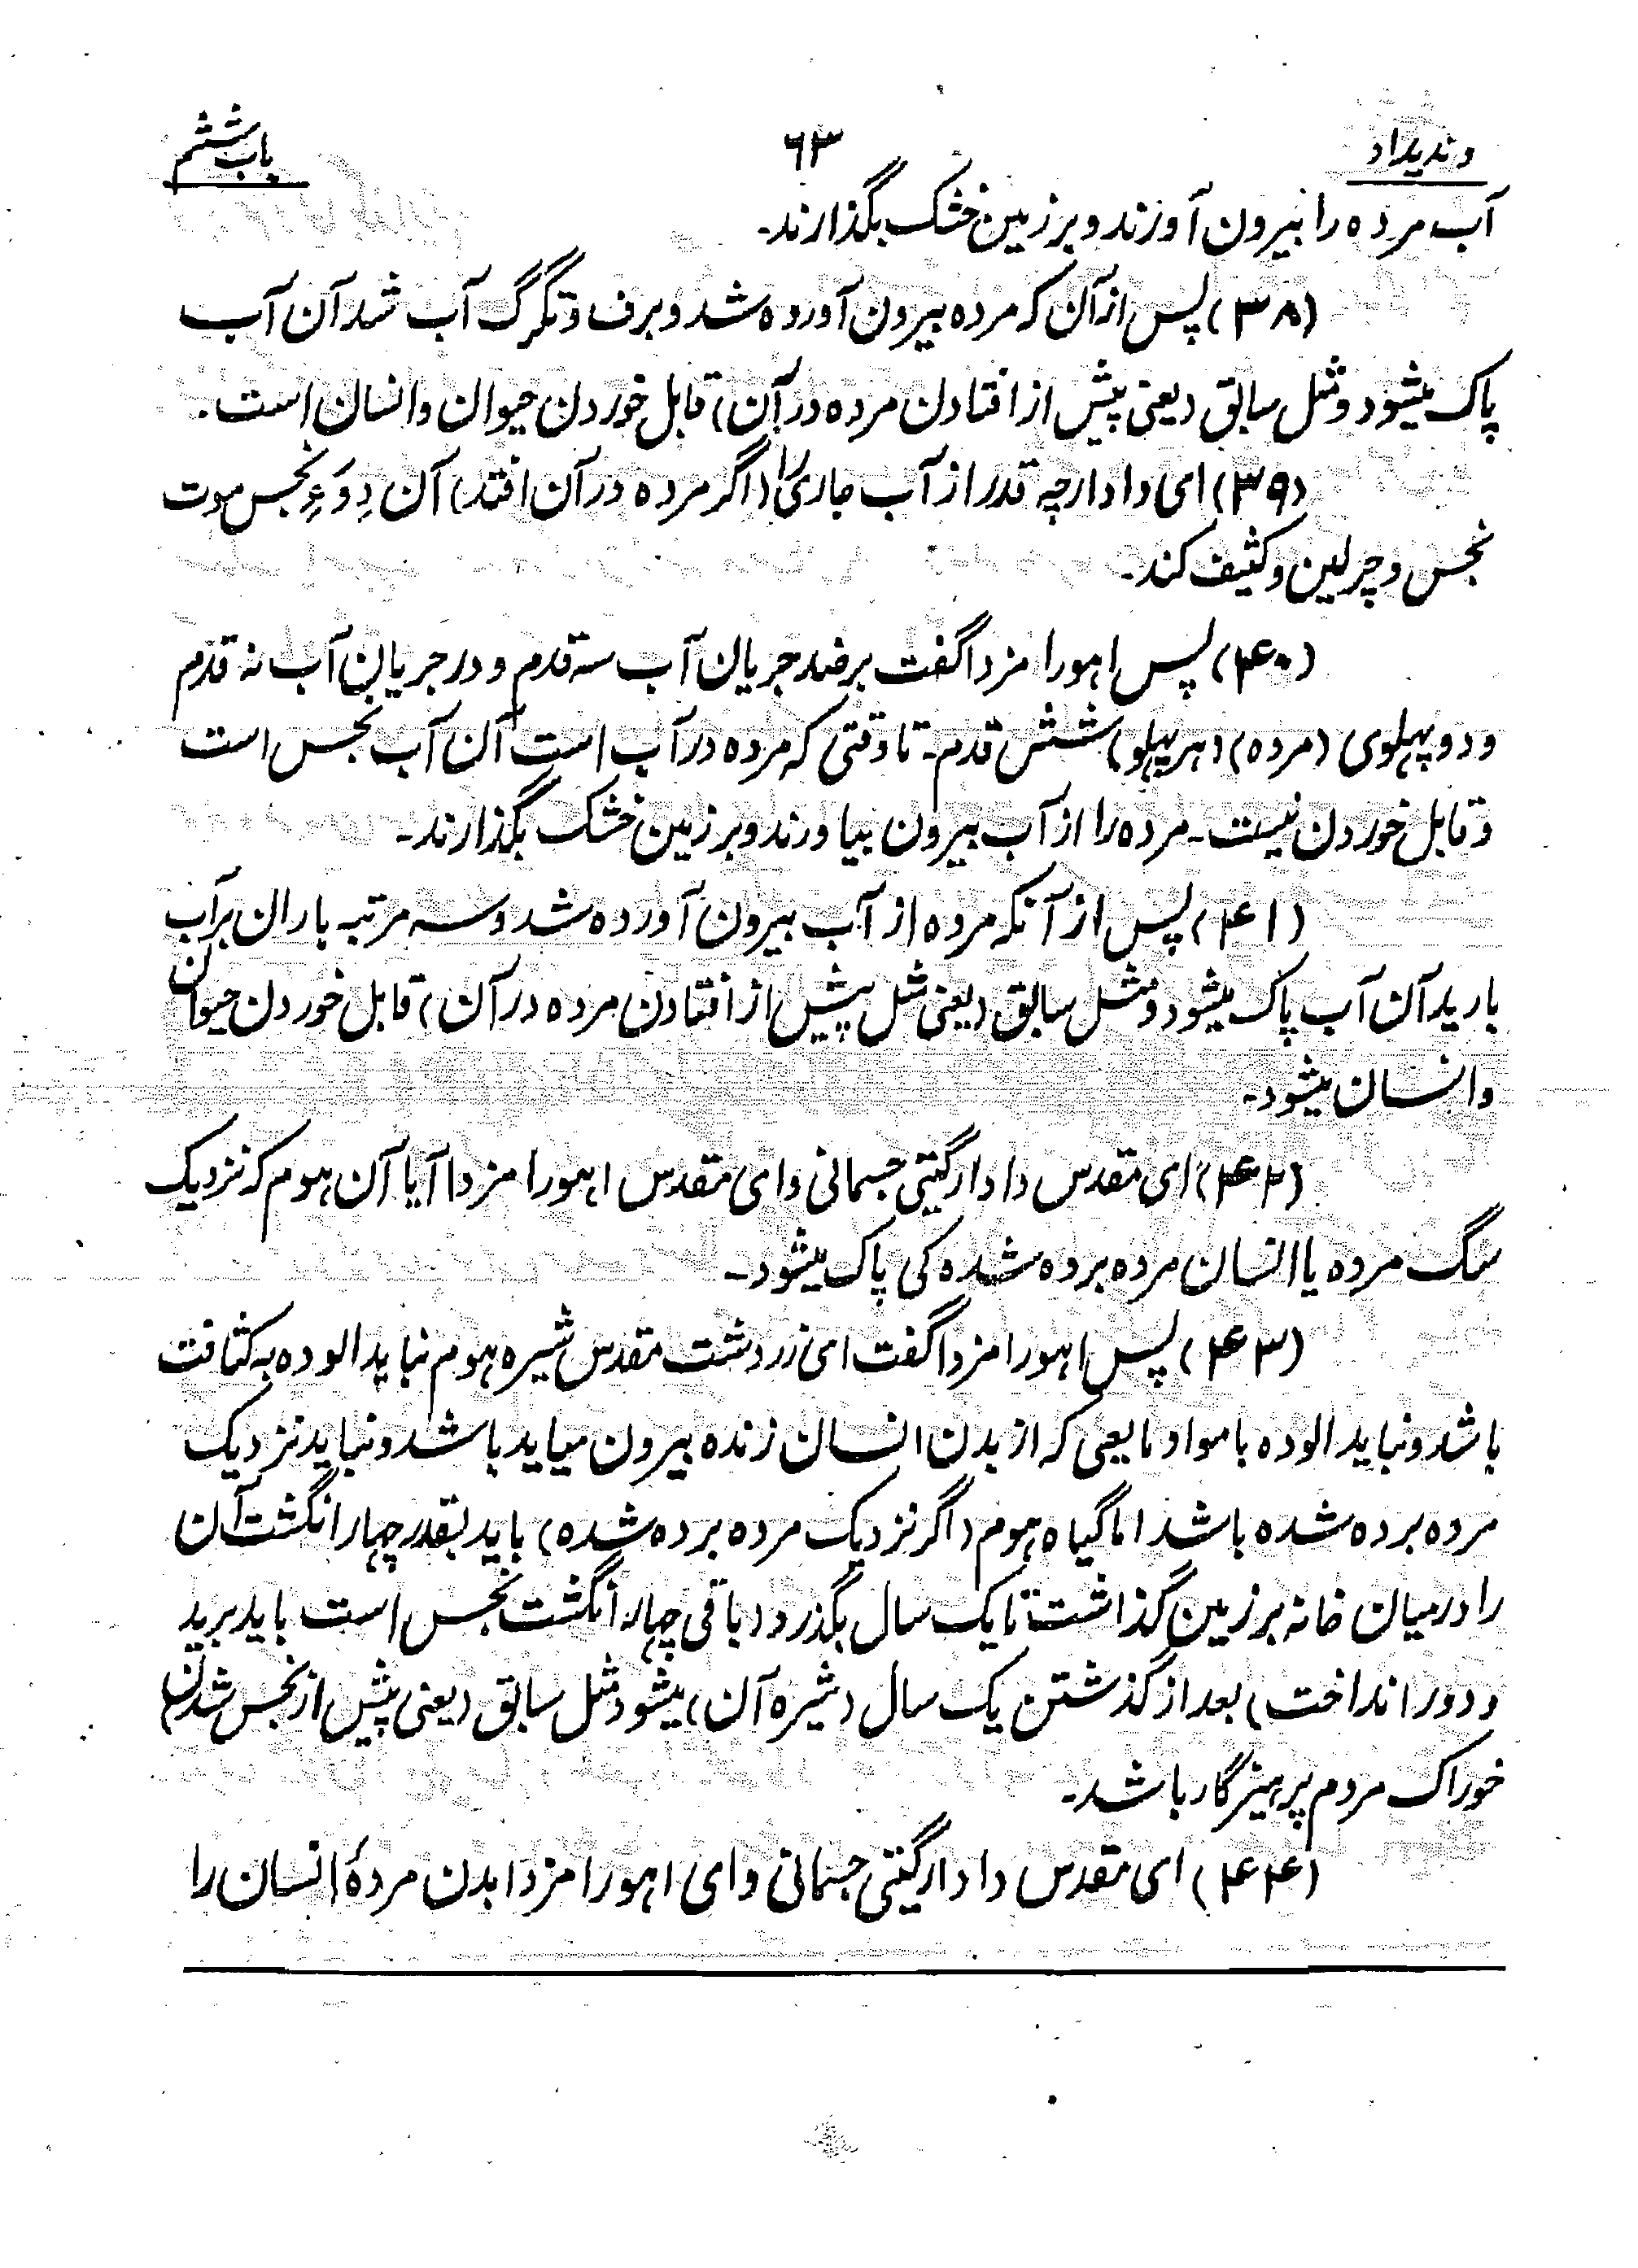 وندیداد
۶۳
باب ششم
آب مرده را بیرون آورند و بر زمین خشک بگذارند۔
(۳۸) پس از آن که مرده بیرون آورده شد و برف و تگرگ آب شد آن آب
پاک میشود و مثل سابق (یعنی پیش از افتادن مرده در آن) قابل خوردن حیوان و انسان است۔
(۳۹) ای دادار چه قدر از آب جاری را (اگر مرده در آن افتد) آن دِوَءِ نجس موت
نجس و چرکین و کثیف کند۔
(۴۰) پس اهورا مزدا گفت بر ضد جریان آب سه قدم و در جریان آب نه قدم
و دو پهلوی (مرده) (هر پهلو) شش قدم۔ تا وقتی که مرده در آب است آن آب نجس است
و قابل خوردن نیست۔ مرده را از آب بیرون بیاورند و بر زمین خشک بگذارند۔
(۴۱) پس از آنکه مرده از آب بیرون آورده شد و سه مرتبه باران بر آب
بارید آن آب پاک میشود و مثل سابق (یعنی مثل پیش از افتادن مرده در آن) قابل خوردن حیوان
و انسان میشود۔
(۴۲) ای مقدس دادار گیتی جسمانی و ای مقدس اهورا مزدا آیا آن هوم که نزدیک
سگ مرده یا انسان مرده برده شده کی پاک میشود۔
(۴۳) پس اهورا مزدا گفت ای زردشت مقدس شیره هوم نباید الوده به کثافت
باشد و نباید الوده با مواد مایعی که از بدن انسان زنده بیرون میاید باشد و نباید نزدیک
مرده برده شده باشد اما گیاه هوم (اگر نزدیک مرده برده شده) باید بقدر چهار انگشت آن
را در میان خانه بر زمین گذاشت تا یک سال بگذرد (باقی چهار انگشت نجس است باید برید
و دور انداخت) بعد از گذشتن یک سال (شیره آن) میشود مثل سابق (یعنی پیش از نجس شدن)
خوراک مردم پرهیزگار باشد۔
(۴۴) ای مقدس دادار گیتی جسمانی و ای اهورا مزدا بدن مردهٔ انسان را